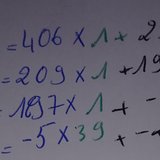 = 406 × 1 + 2
= 209 × 1 + 19
- 197 × 1 + -
= -5 × 39 + -